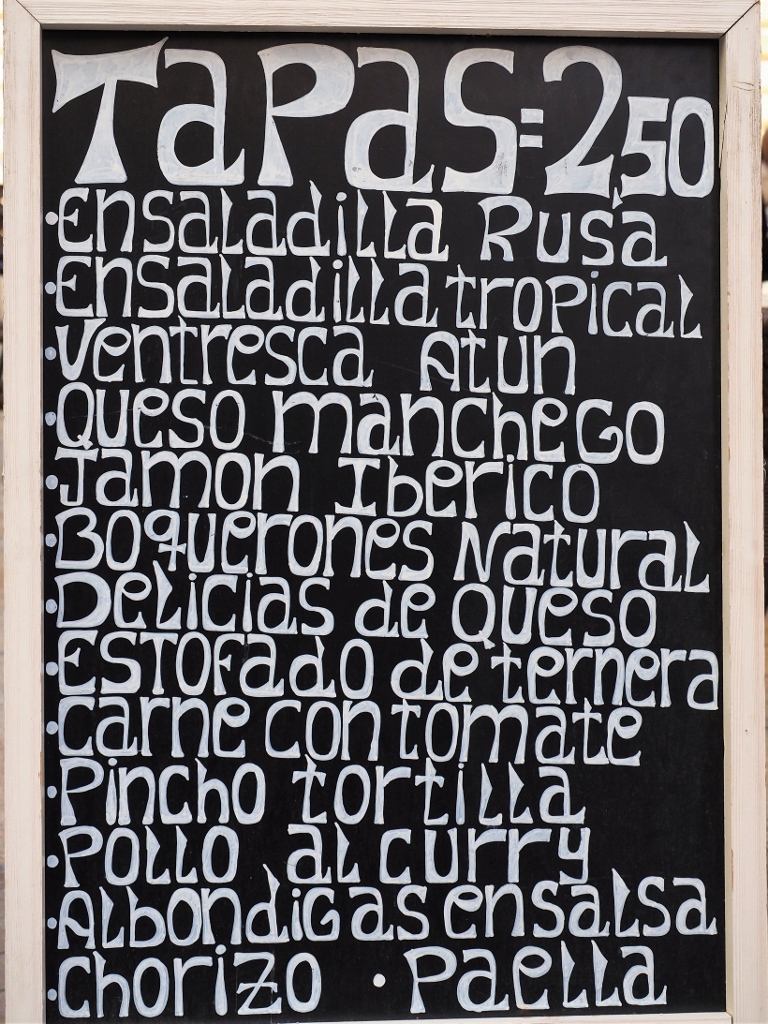 TaPaS=2,50
·Ensaladilla Rusa
·Ensaladilla tropical
·Ventresca Atun
·Queso manchego
·Jamon Iberico
·Boquerones Natural
·Delicias de Queso
·ESTOFado de ternera
·Carne con tomate
·Pincho tortilla
·Pollo al curry
·Albondigas en salsa
·Chorizo · Paella